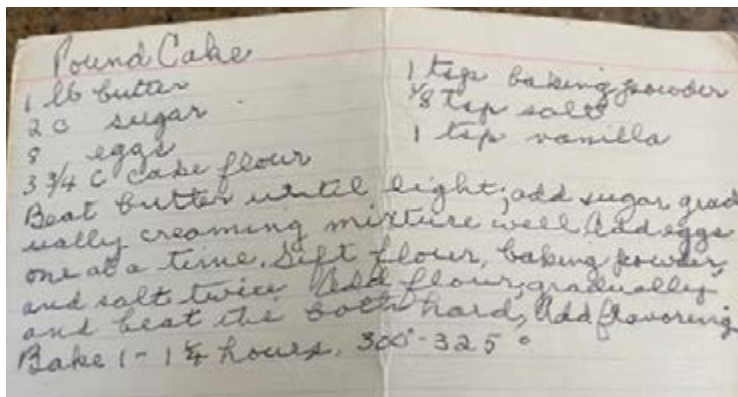 Pound Cake
1 lb butter
2 c sugar
8 eggs
3 3/4 c cake flour
1 tsp baking powder
1/8 tsp salt
1 tsp vanilla
Beat butter until light; add sugar grad
ually creaming mixture well, add eggs
one at a time. Sift flour, baking powder,
and salt twice. Add flour, gradually
and beat the hard, Add flavoring
Bake 1 - 1 1/4 hours, 300° - 325°